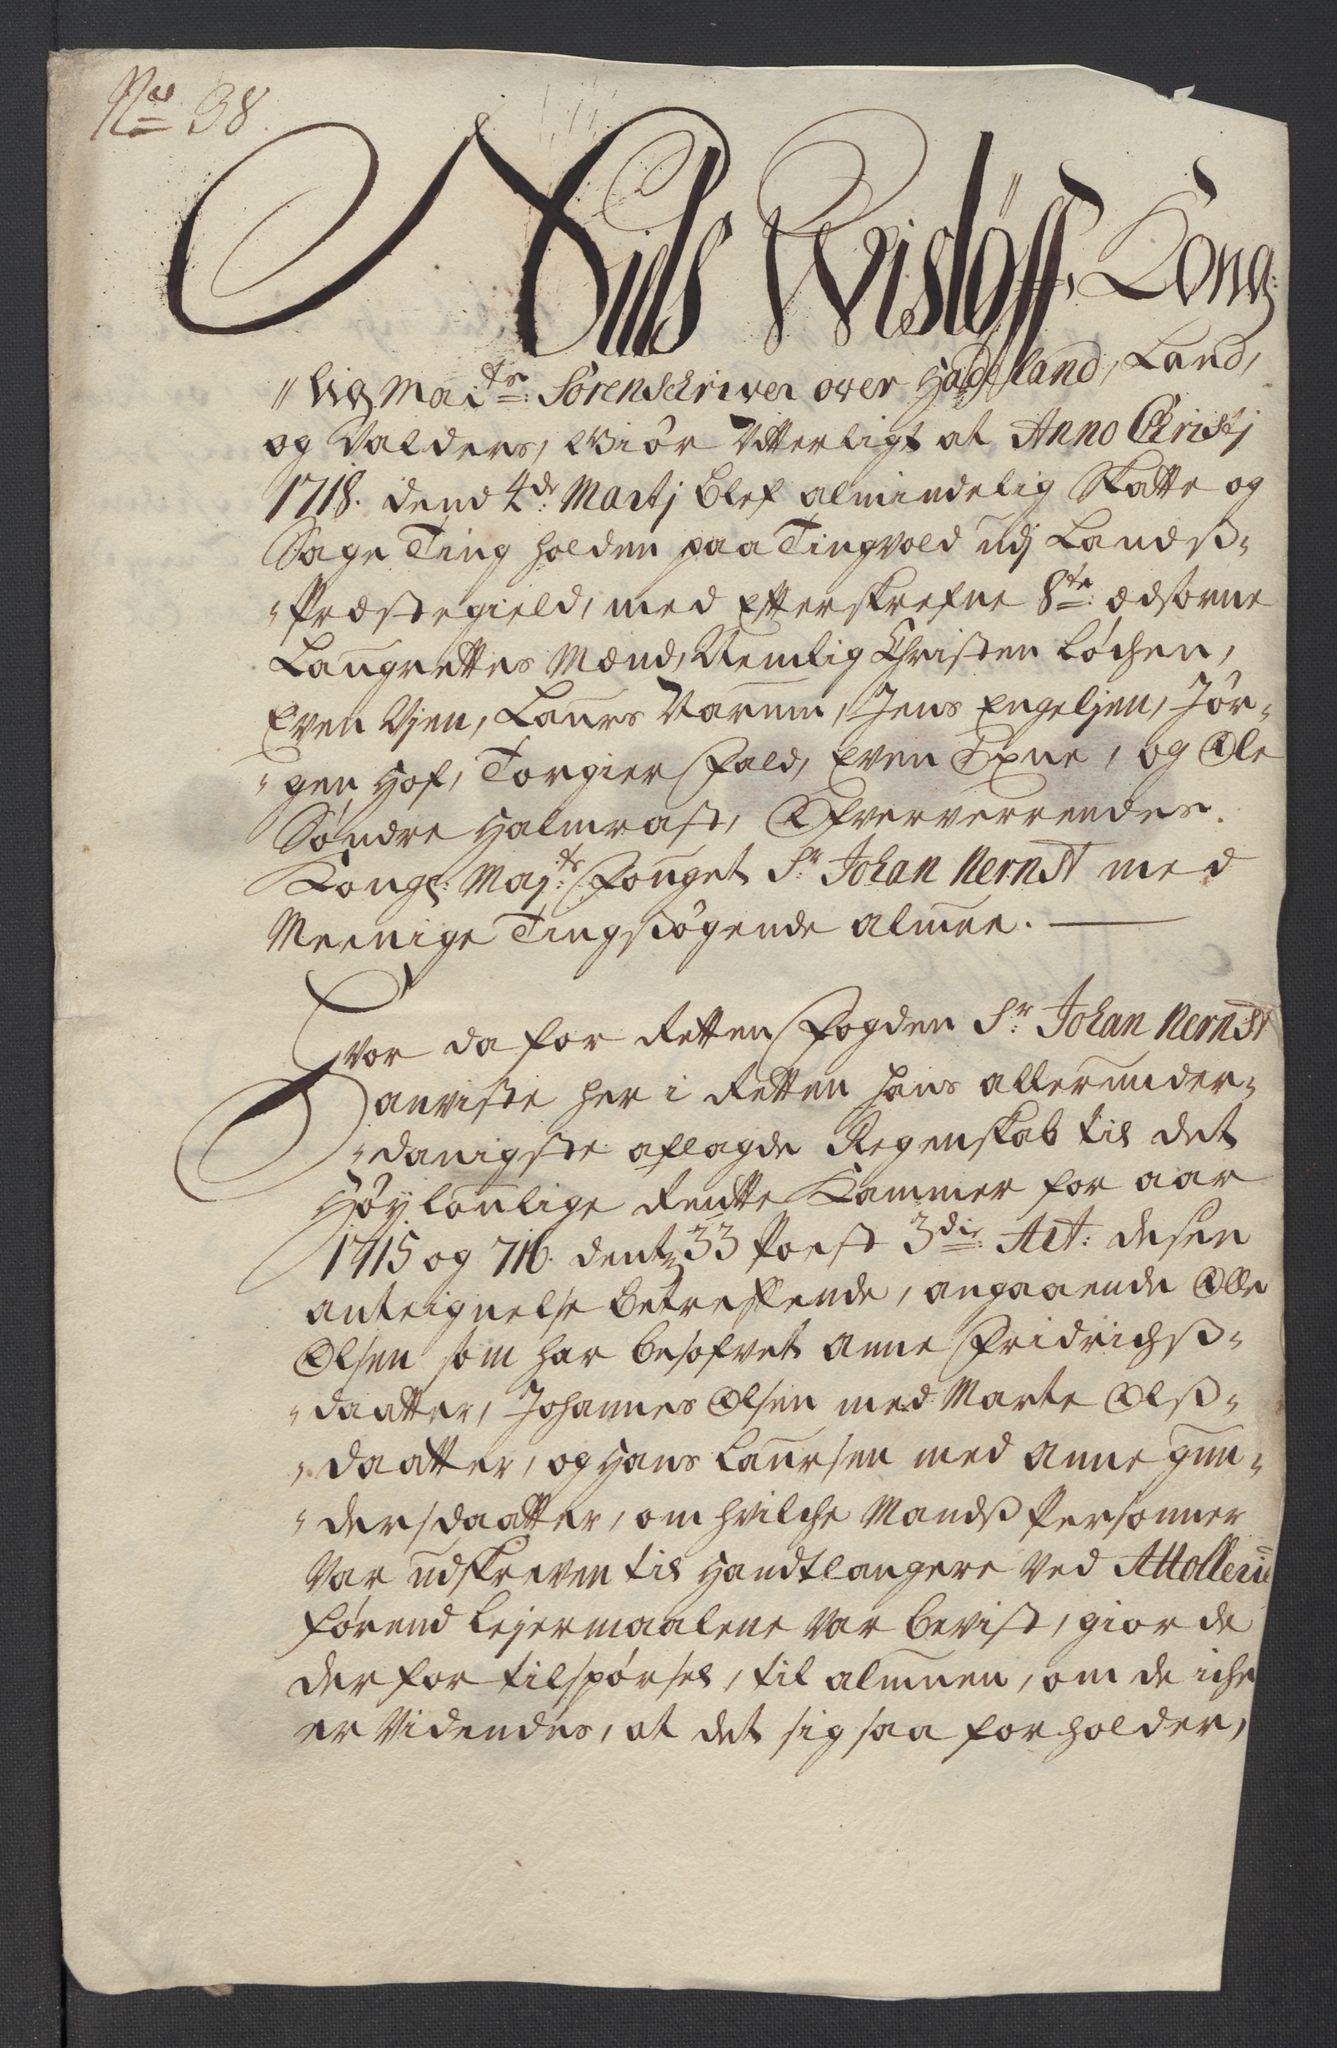 No 38.
Niels Wislöff, Kong:
"lig Maj:ts Sorenschriver over Hadeland, Land,
og Valders, Giör Vitterligt at Anno Christj
1718. dend 4de Martj blef almindelig Skatte og
Sage Ting holden paa Tingvold udj Landß-
-Præstegield, med Efterskrefne 8te ædsorne
Laugrettes Mænd, Nemlig Christen Löchen,
Even Vjen, Laurs Narum, Jens Engeljen, Jör-
-gen Hof, Torgier Fald, Even Exne, og Ole
Söndre Halmrast, Ofververrendes.
Kongl: Maj:ts Fouget Sr: Johan Nernst med
Meenige Tingsögende almue.
Hvor da for Retten Fogden Sr: Johan Nernst
anviste her i Retten hans allerunder-
-danigste aflagde Regenskab til det
Höylovlige Rentte Kammer for aar
1715 og 716. dents 33 Post 3die Art: desen
anteignelse betreffende, angaaende Olle
Olsen som har besofvet Anne Fridrichß-
-daatter, Johannes Olsen med Marte Olß-
-daatter, og Hans Laursen med Anne Gun-
-dersdaatter, om hvilche Mandß Personner
Var udskreven til Handtlangere ved Attollerie
förend Lejermaalene var bevist, gior de
derfor tilspörsel, til almuen, om de iche
er Videndes, at det sig saa forholder,